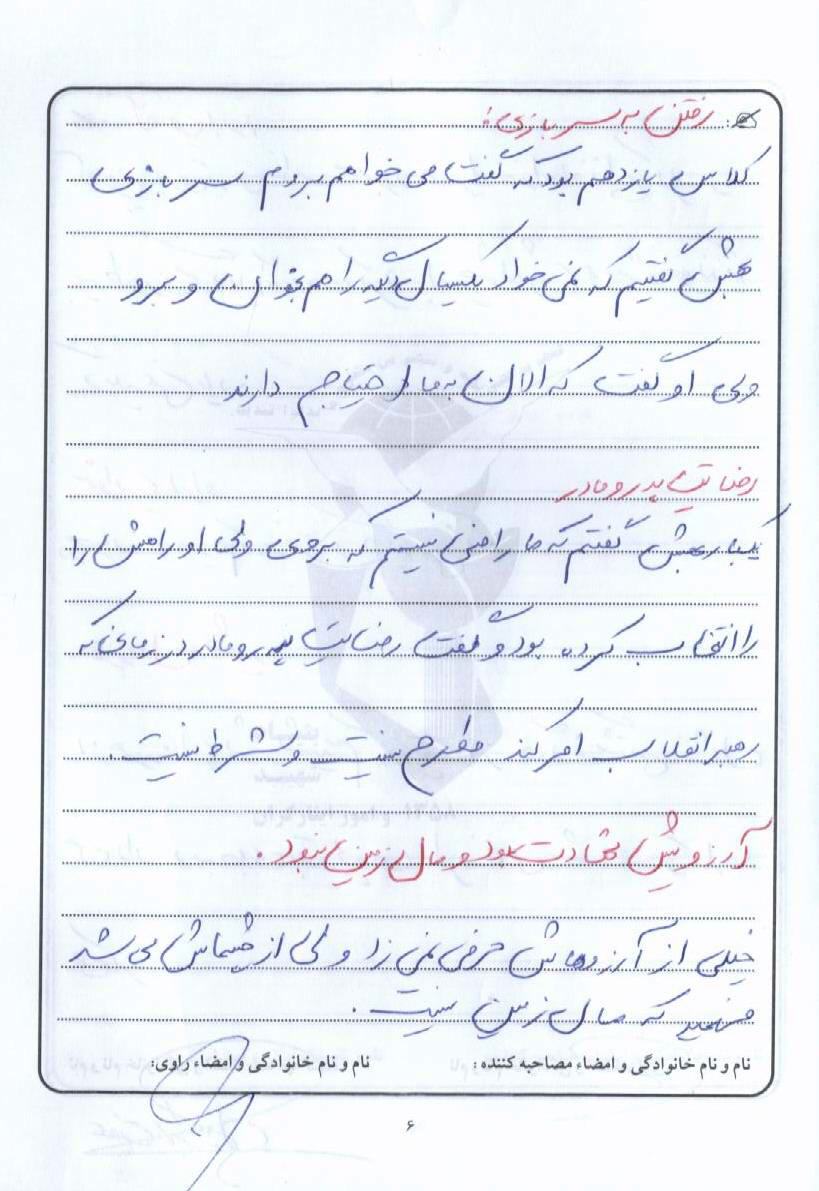 رفتن به سربازی:
کلاس یازدهم بود که گفت می خواهم بروم سربازی
بهش گفتیم که نمی خواد یکسال دیگه را هم بخوان و برو
ولی او گفت که الان به ما احتیاج دارند
رضایت پدر و مادر
یکبار بهش گفتم که ما راضی نیستم که بروی ولی او راهش را
را انتخاب کرده بود و گفت رضایت پدر و مادر در زمانی که
رهبر انقلاب امر کند مطرح نیست و شرط نیست.
آرزویش شهادت بود و مال زمین نبود.
خیلی از آرزوهاش حرفی نمی زد ولی از چشماش می شد
فهمید که مال زمین نیست.
نام و نام خانوادگی و امضاء مصاحبه کننده: نام و نام خانوادگی و امضاء راوی:
۶